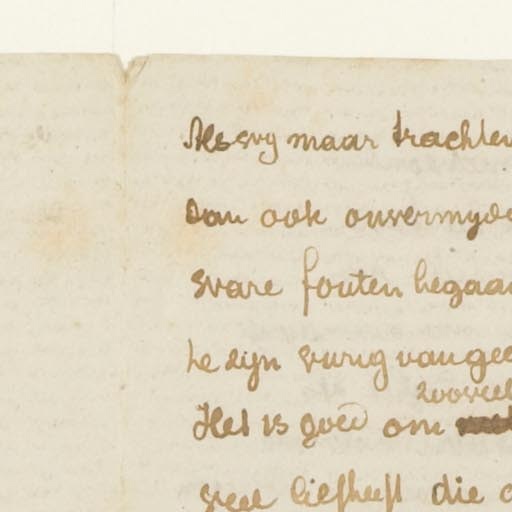 Als wy maar trachten
dan ook onvermyde
ware fouten begaan
te zijn vurig van gee
zooveel
Het is goed om
veel liefheeft die